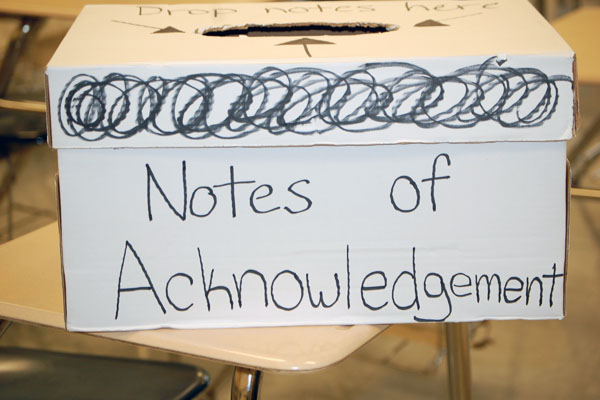 Drop notes here
Notes of
Acknowledgement